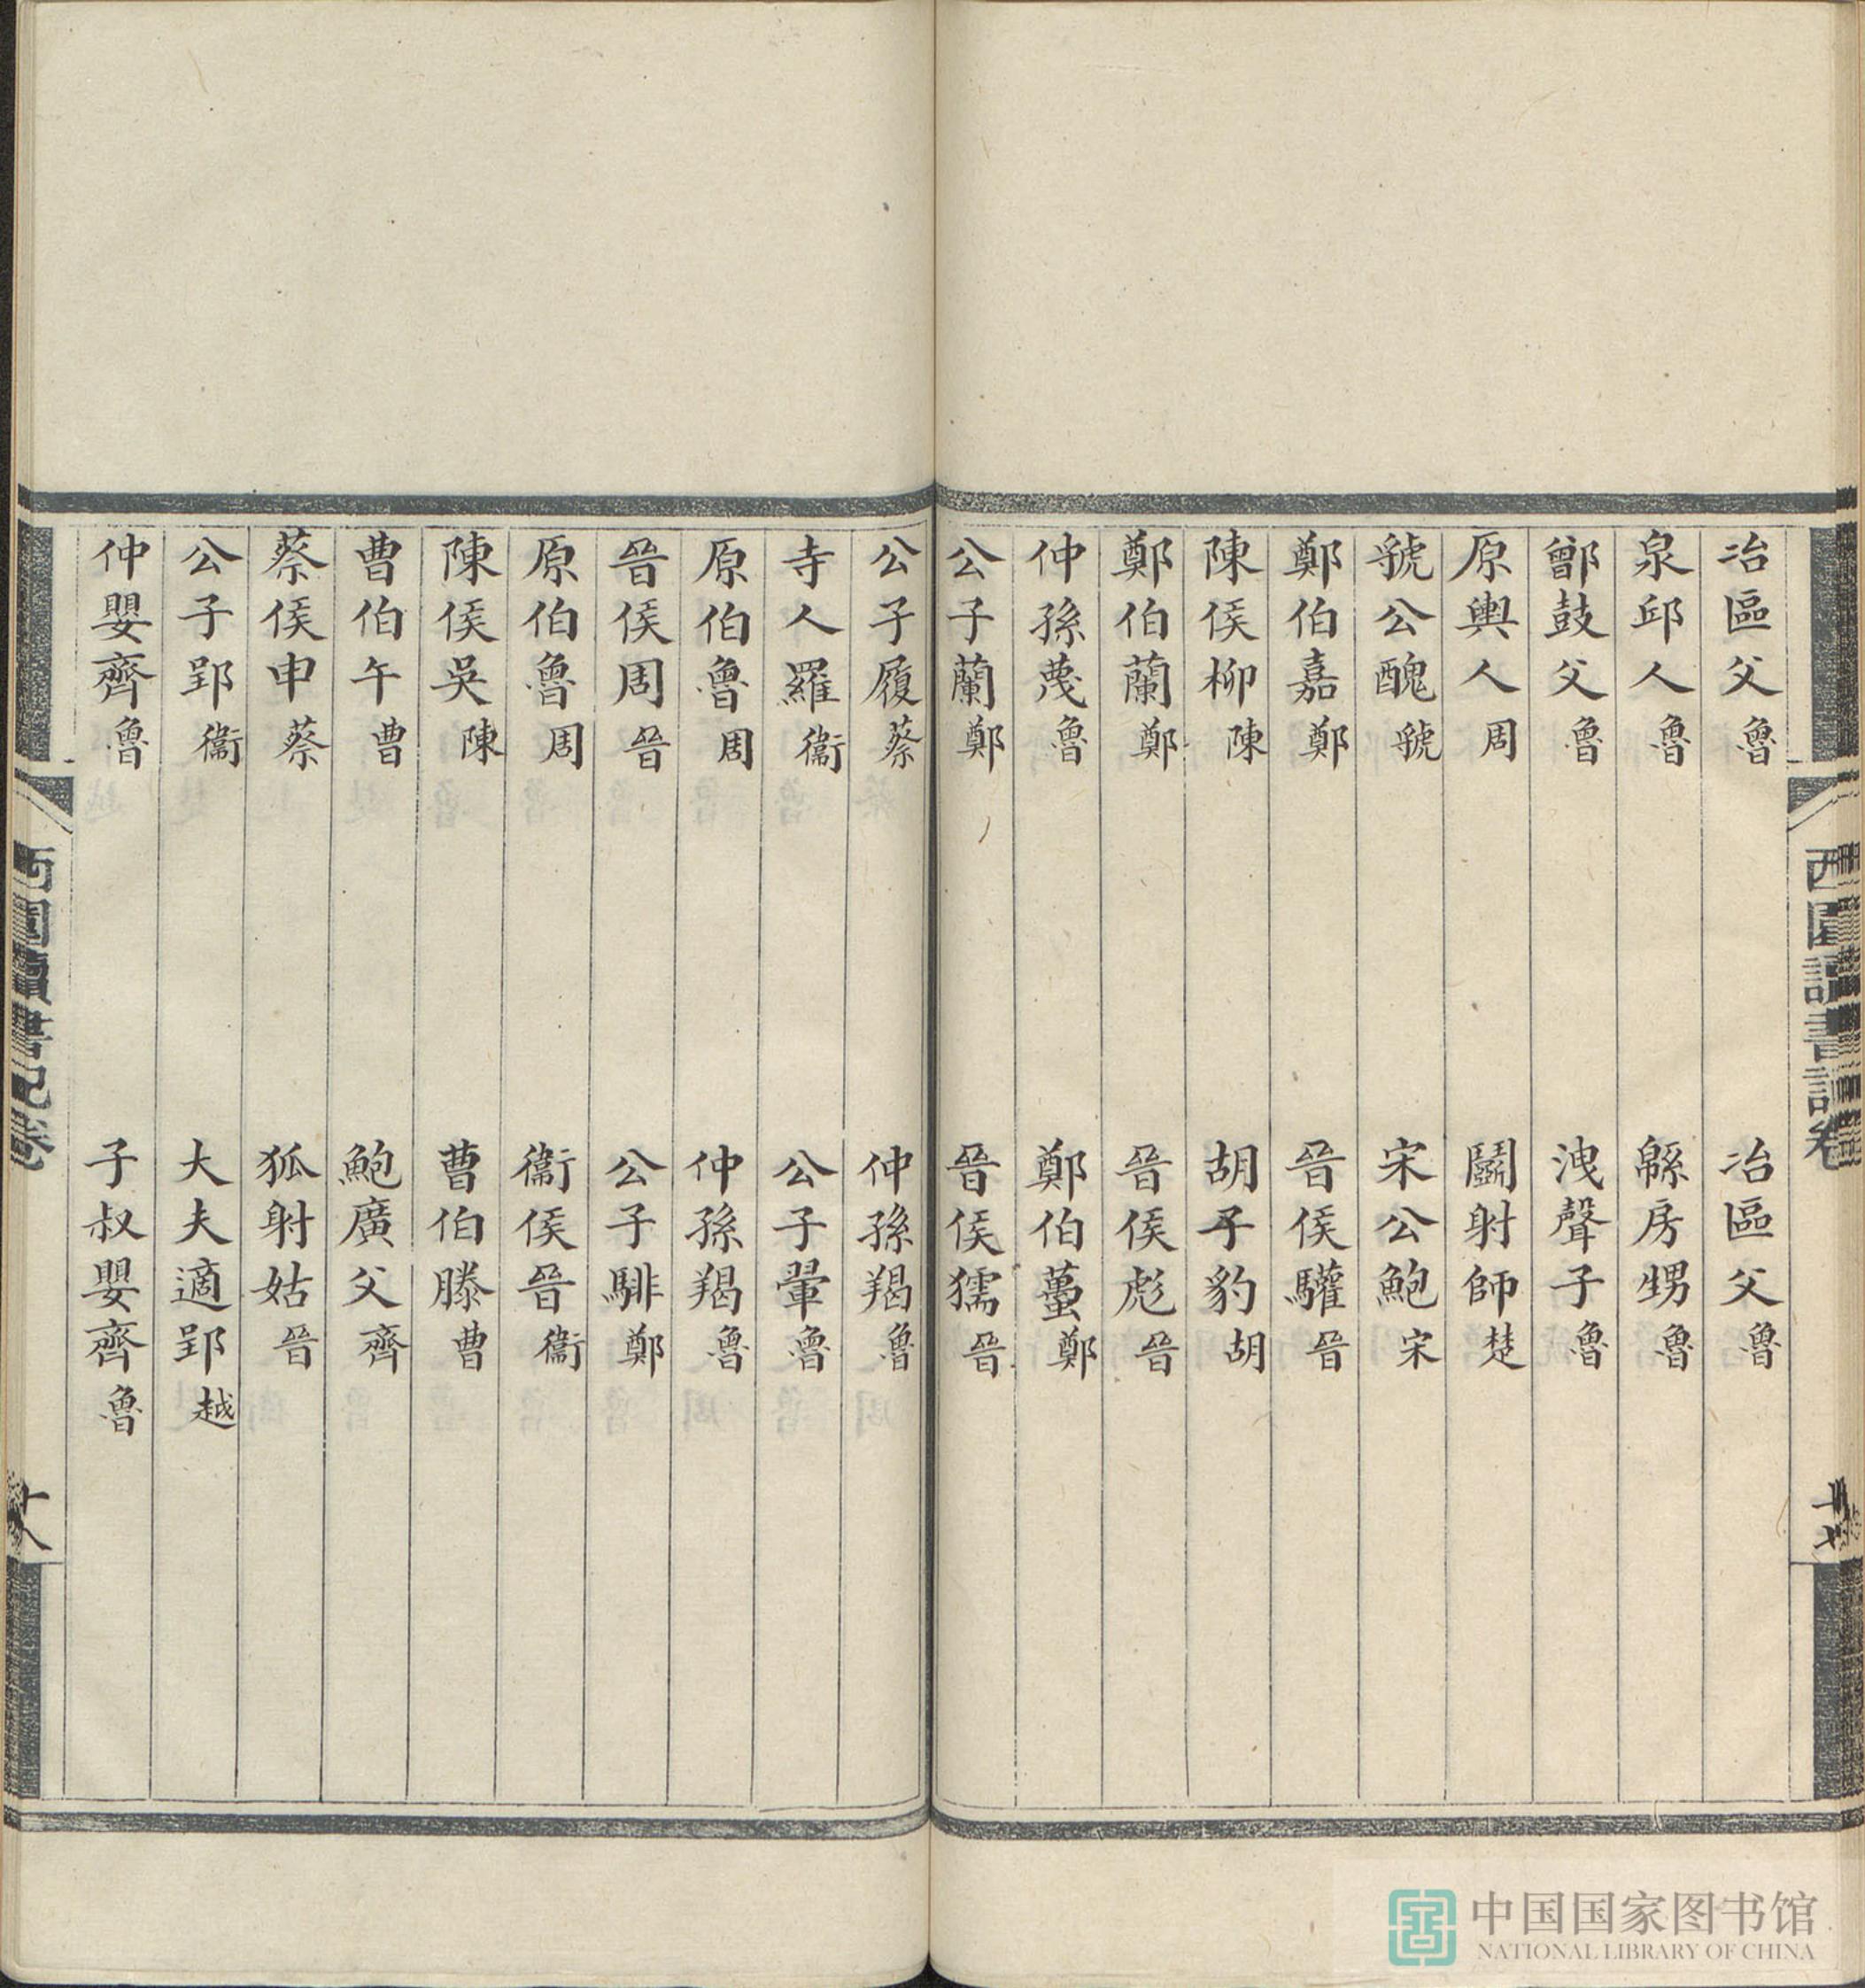 冶區父魯 冶區父魯
泉邱人魯 緜房甥魯
鄫鼓父魯 洩聲子魯
原輿人周 鬬射師楚
虢公醜虢 宋公鮑宋
鄭伯嘉鄭 晉侯驩晉
陳侯柳陳 胡子豹胡
鄭伯蘭鄭 晉侯彪晉
仲孫蔑魯 鄭伯蠆鄭
公子蘭鄭 晉侯獳晉
公子履蔡 仲孫羯魯
寺人羅衞 公子翬魯
原伯魯周 仲孫羯魯
晉侯周晉 公子騑鄭
原伯魯周 衞侯晉衞
陳侯吳陳 曹伯滕曹
曹伯午曹 鮑廣父齊
蔡侯申蔡 狐射姑晉
公子郢衞 大夫適郢越
仲嬰齊魯 子叔嬰齊魯
西園讀書記卷
西園讀書記卷
中国国家图书馆
NATIONAL LIBRARY OF CHINA